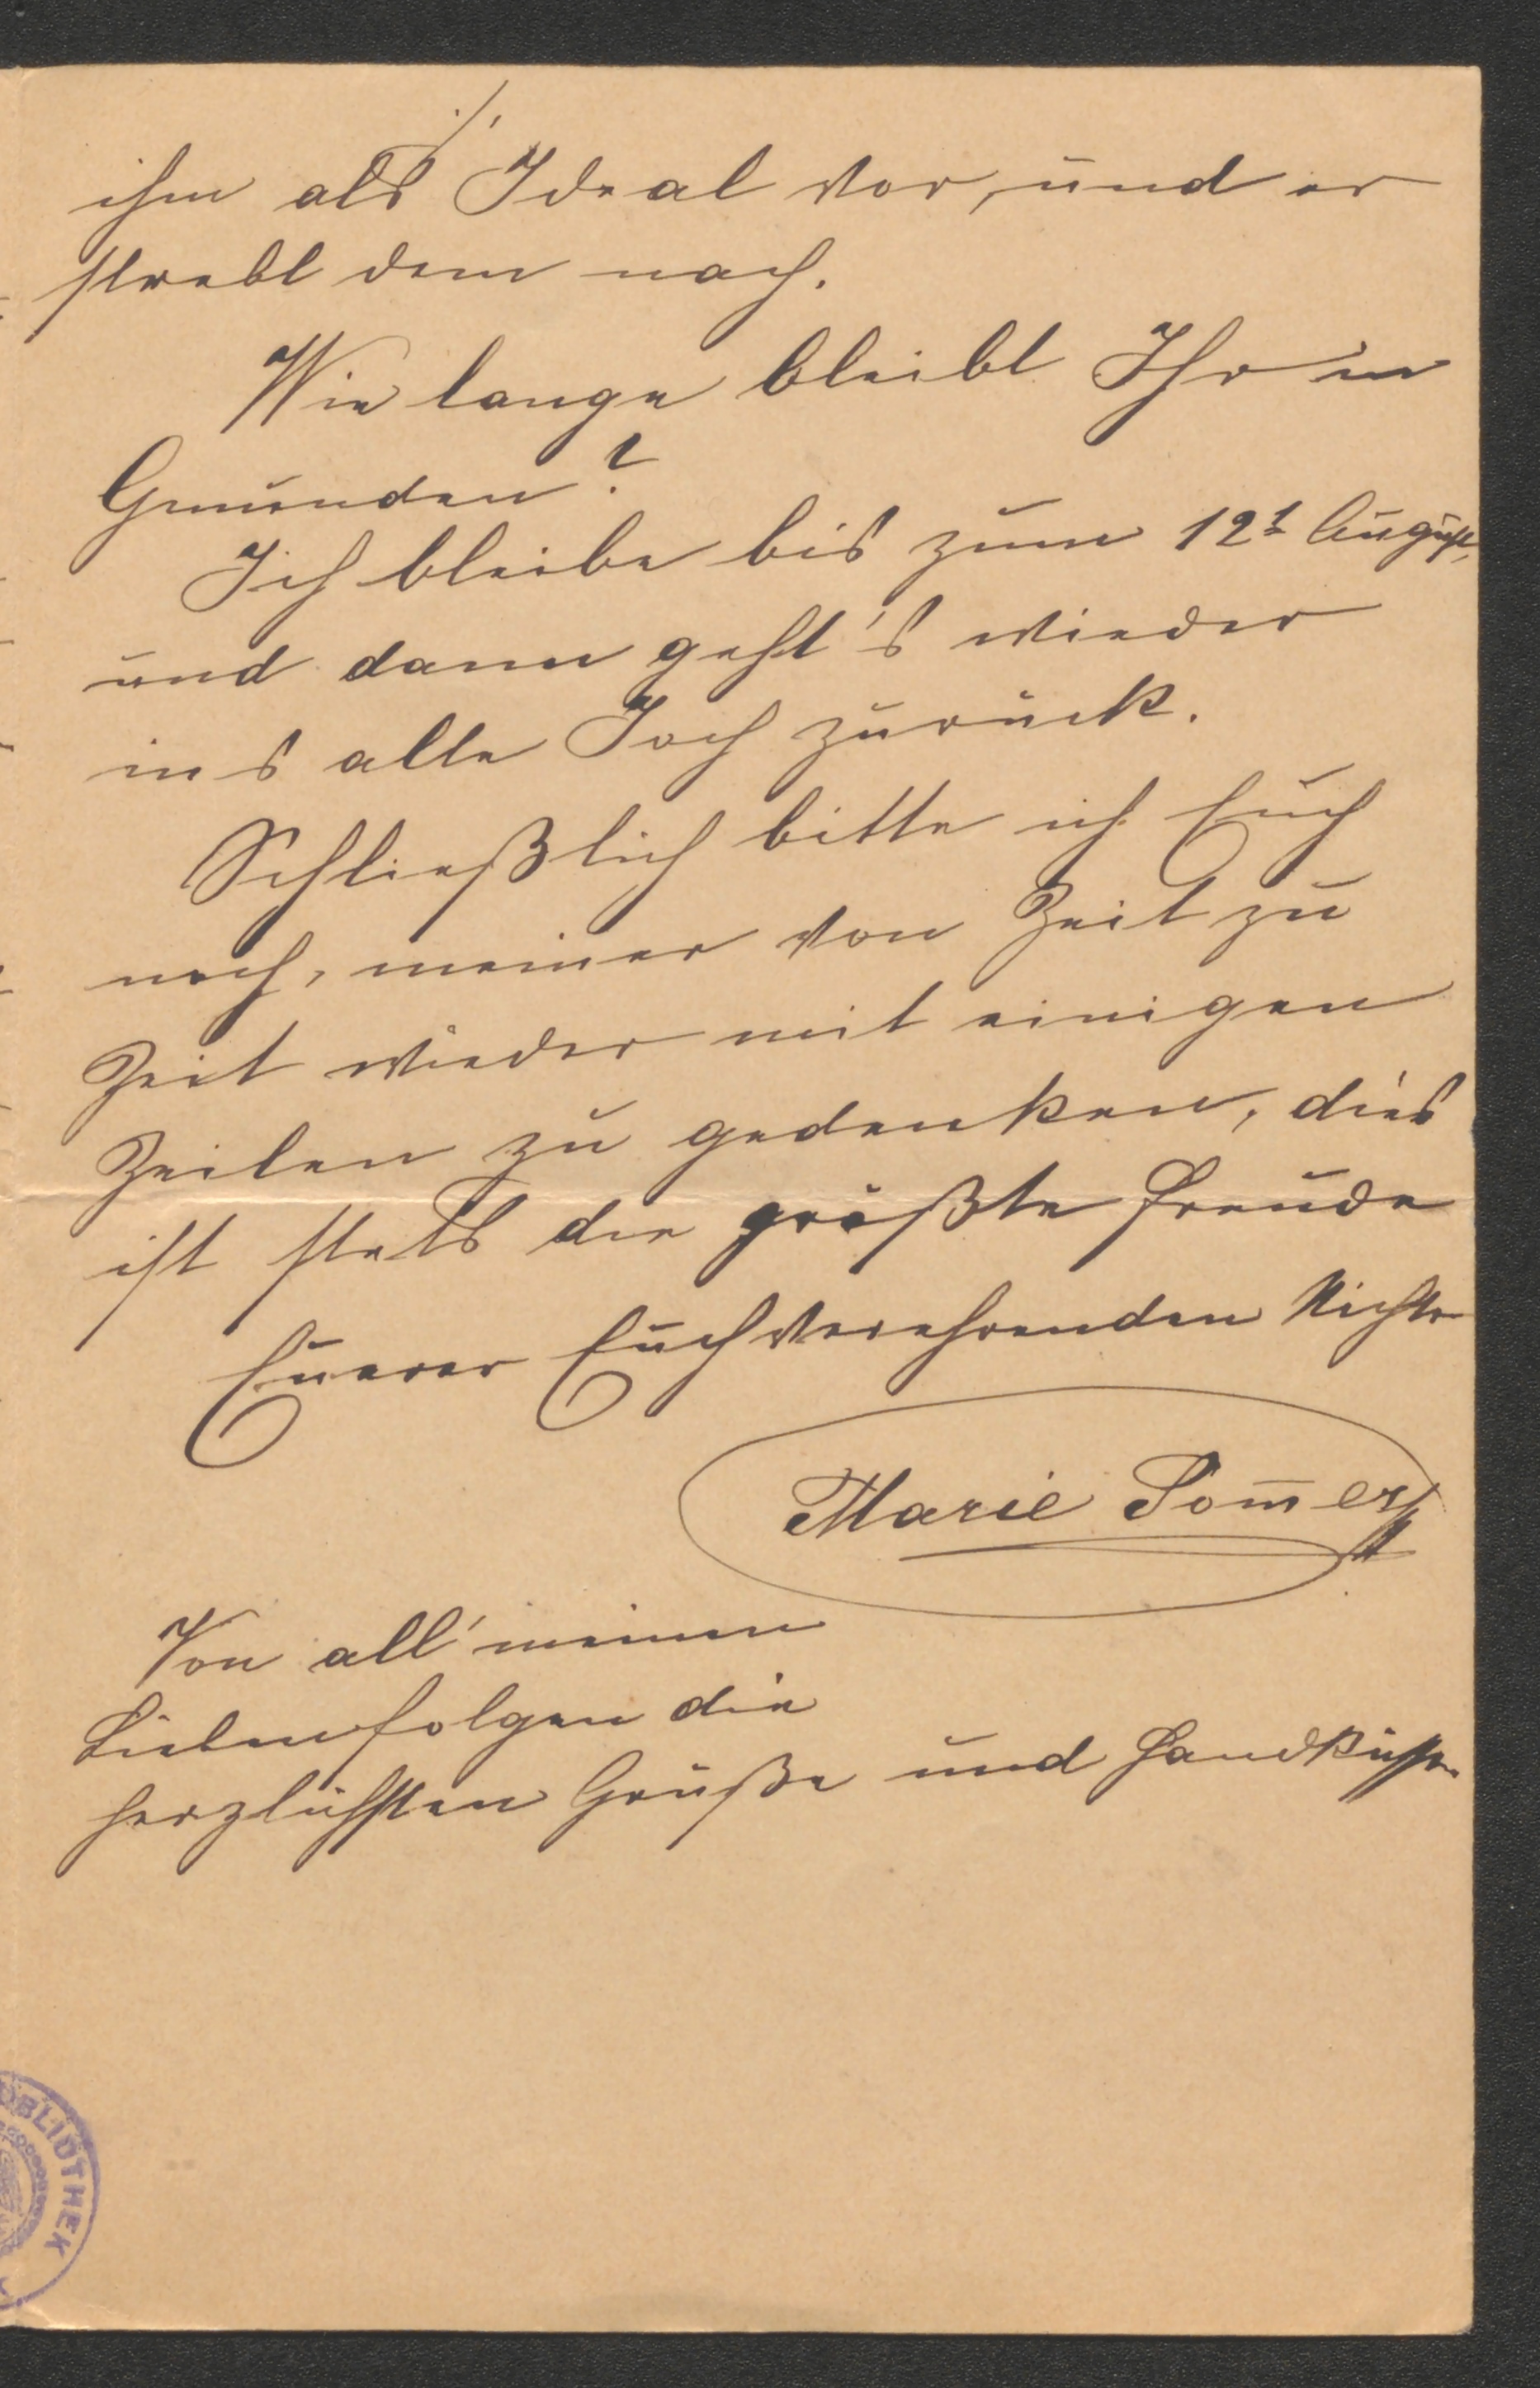 ./.
ihm als Ideal vor, und er
strebt dem nach.
Wie lange bleibt Ihr in
Gmunden?
Ich bleibe bis zum 12t August,
und dann geht's wieder
ins alte Joch zurück.
Schließlich bitte ich Euch
noch, meiner von Zeit zu
Zeit wieder mit einigen
Zeilen zu gedenken, dies
ist stets die größte Freude
Euerer Euch verehrenden Nichte
Marie Som̅er
Von all' meinen
Lieben folgen die
herzlichsten Grüße und Handküsse.
BLIOTHEK